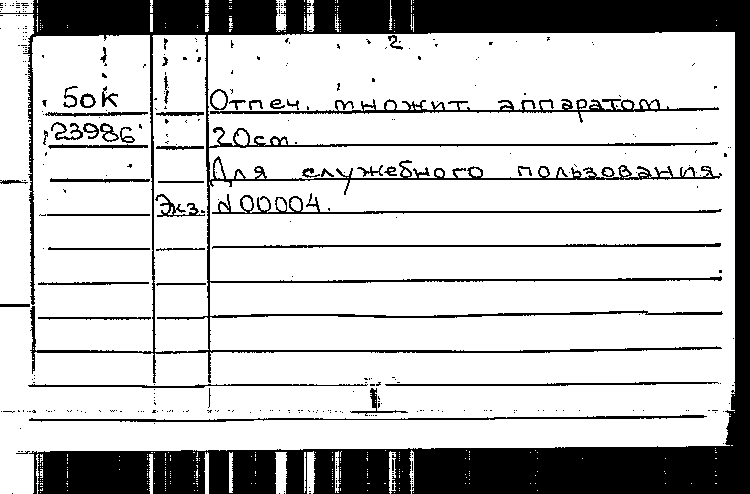 2
50К Отпеч. множит. аппаратом.
23986 20см.
Для служебного пользования.
Экз. №00004.